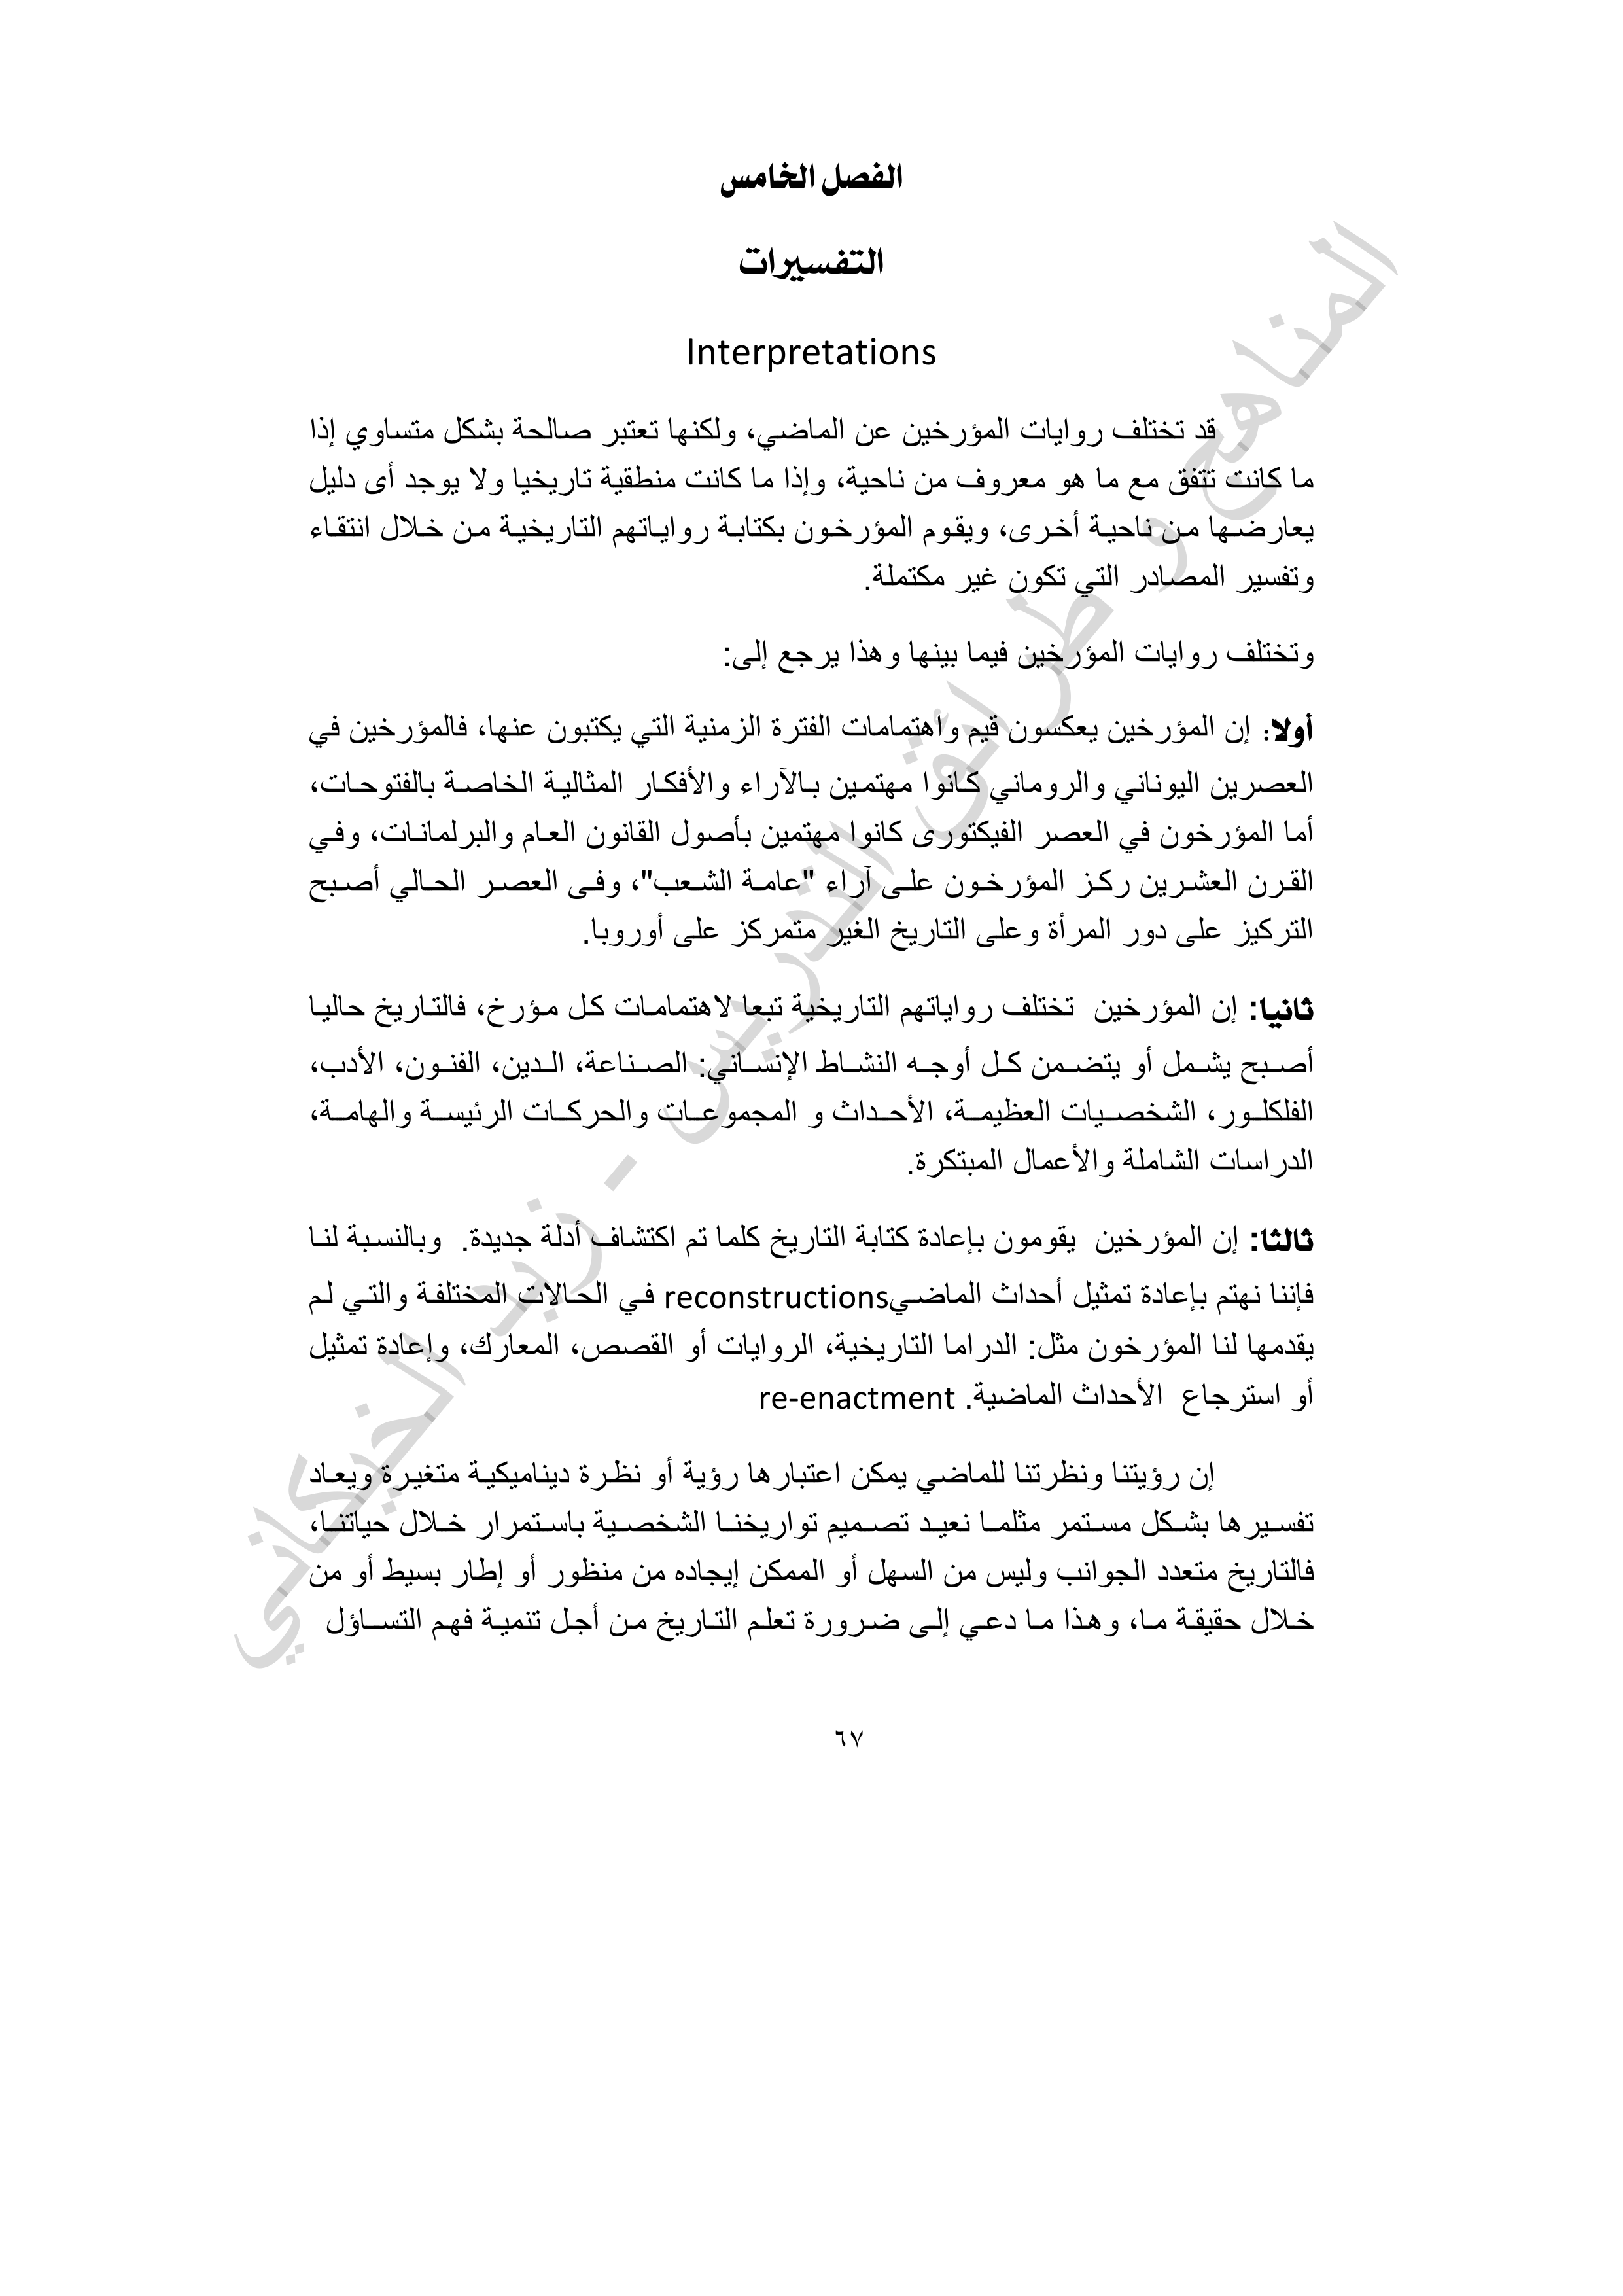 الفصل الخامس
التفسيرات
Interpretations
قد تختلف روايات المؤرخين عن الماضي، ولكنها تعتبر صالحة بشكل متساوي إذا
ما كانت تتفق مع ما هو معروف من ناحية، وإذا ما كانت منطقية تاريخيا ولا يوجد أى دليل
يعارضها من ناحية أخرى، ويقوم المؤرخون بكتابة رواياتهم التاريخية من خلال انتقاء
وتفسير المصادر التي تكون غير مكتملة.
وتختلف روايات المؤرخين فيما بينها وهذا يرجع إلى:
أولا: إن المؤرخين يعكسون قيم واهتمامات الفترة الزمنية التي يكتبون عنها، فالمؤرخين في
العصرين اليوناني والروماني كانوا مهتمين بالآراء والأفكار المثالية الخاصة بالفتوحات،
أما المؤرخون في العصر الفيكتورى كانوا مهتمين بأصول القانون العام والبرلمانات، وفي
القرن العشرين ركز المؤرخون على آراء "عامة الشعب"، وفى العصر الحالي أصبح
التركيز على دور المرأة وعلى التاريخ الغير متمركز على أوروبا.
ثانيا: إن المؤرخين تختلف رواياتهم التاريخية تبعا لاهتمامات كل مؤرخ، فالتاريخ حاليا
أصبح يشمل أو يتضمن كل أوجه النشاط الإنساني: الصناعة، الدين، الفنون، الأدب،
الفلكلور، الشخصيات العظيمة، الأحداث و المجموعات والحركات الرئيسة والهامة،
الدراسات الشاملة والأعمال المبتكرة.
ثالثا: إن المؤرخين يقومون بإعادة كتابة التاريخ كلما تم اكتشاف أدلة جديدة. وبالنسبة لنا
فإننا نهتم بإعادة تمثيل أحداث الماضيreconstructions في الحالات المختلفة والتي لم
يقدمها لنا المؤرخون مثل: الدراما التاريخية، الروايات أو القصص، المعارك، وإعادة تمثيل
أو استرجاع الأحداث الماضية. re-enactment
إن رؤيتنا ونظرتنا للماضي يمكن اعتبارها رؤية أو نظرة ديناميكية متغيرة ويعاد
تفسيرها بشكل مستمر مثلما نعيد تصميم تواريخنا الشخصية باستمرار خلال حياتنا،
فالتاريخ متعدد الجوانب وليس من السهل أو الممكن إيجاده من منظور أو إطار بسيط أو من
خلال حقيقة ما، وهذا ما دعي إلى ضرورة تعلم التاريخ من أجل تنمية فهم التساؤل
٦٧
المناهج و طرائق التدريس - زيد الخيكاني